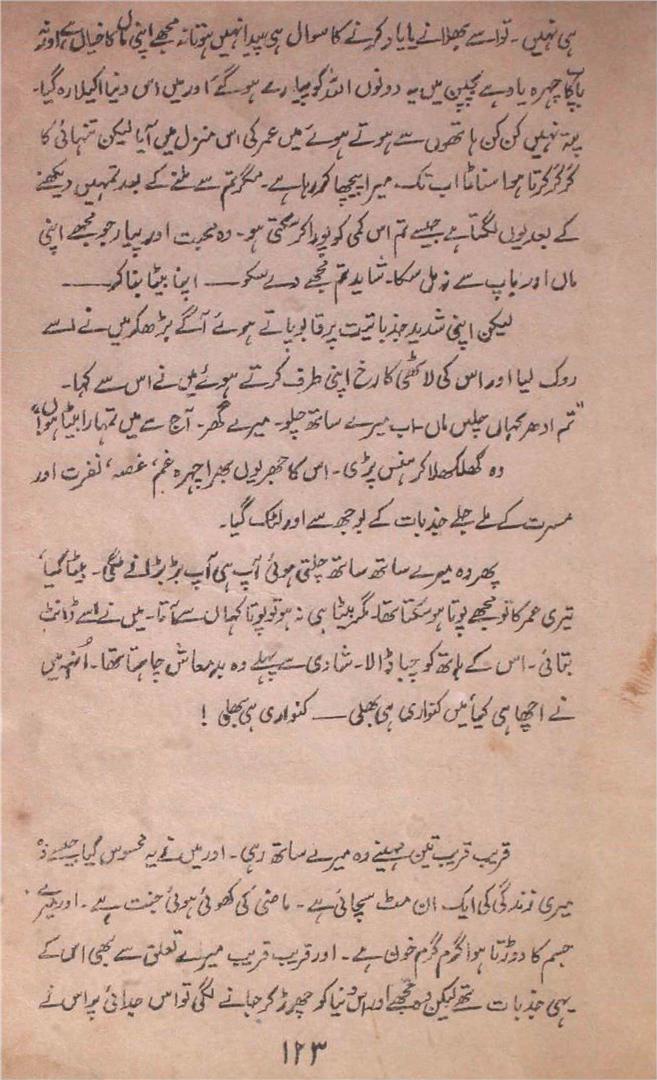 ہی نہیں۔ تو اسے بھلانے یا یاد کرنے کا سوال ہی پیدا نہیں ہوتا نہ مجھے اپنی ماں کا خیال ہے اور نہ
باپ کا چہرہ یاد ہے بچپن میں یہ دونوں اللہ کو پیارے ہو گئے اور میں اس دنیا اکیلا رہ گیا۔
پتہ نہیں کن کن ہاتھوں سے ہوتے ہوئے میں عمر کی اس منزل میں آیا لیکن تنہائی کا
کڑکڑ کرتا ہوا سناٹا اب تک میرا پیچھا کر رہا ہے۔ مگر تم سے ملنے کے بعد تمہیں دیکھنے
کے بعد یوں لگتا ہے جیسے تم اس کمی کو پورا کر سکتی ہو۔ وہ محبت اور پیار جو مجھے اپنی
ماں اور باپ سے نہ مل سکا۔ شاید تم مجھے دے سکو — اپنا بیٹا بنا کر —
لیکن اپنی شدید جذباتیت پر قابو پاتے ہوئے آگے بڑھ کر میں نے اسے
روک لیا اور اس کی لاٹھی کا رخ اپنی طرف کرتے ہوئے میں نے اس سے کہا۔
"تم ادھر کہاں چلیں ماں۔ اب میرے ساتھ چلو۔ میرے گھر۔ آج سے میں تمہارا بیٹا ہوں!"
وہ کھلکھلا کر ہنس پڑی۔ اس کا جھریوں بھرا چہرہ غم، غصہ، نفرت اور
مسرت کے ملے جلے جذبات کے بوجھ سے اور لٹک گیا۔
پھر وہ میرے ساتھ ساتھ چلتی ہوئی آپ ہی آپ بڑبڑانے لگی۔ بیٹا کیا،
تیری عمر کا تو مجھے پوتا ہو سکتا تھا۔ مگر بیٹا ہی نہ ہو تو پوتا کہاں سے آتا۔ میں نے اسے ڈانٹ
بتائی۔ اس کے ہاتھ کو چبا ڈالا۔ شادی سے پہلے وہ بدمعاش چاہتا تھا۔ انہیں
نے اچھا ہی کیا میں کنواری ہی بھلی — کنواری ہی بھلی!
قریب قریب تین مہینے وہ میرے ساتھ رہی۔ اور میں نے یہ محسوس کیا جیسے وہ
میری زندگی کی ایک ان مٹ سچائی ہے۔ ماضی کی کھوئی ہوئی جنت ہے۔ اور میرے
جسم کا دوڑتا ہوا گرم گرم خون ہے۔ اور قریب قریب میرے تعلق سے بھی اس کے
یہی جذبات تھے لیکن وہ مجھے اور اس دنیا کو چھوڑ کر جانے لگی تو اس جدائی پر اس نے
۱۲۳